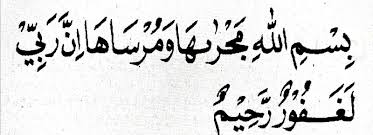 بِسْمِ اللهِ مَجْرٰىهَا وَمُرْسَاهَا اِنَّ رَبِّيْ
لَغَفُوْرٌ رَّحِيْمٌ